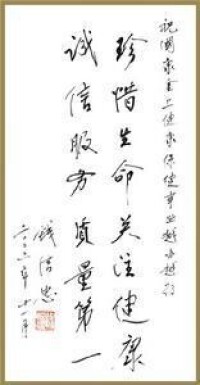 祝国家上健康保健事业越办越好
珍惜生命关注健康
诚信服务质量第一
钱信忠
二〇〇六年十一月